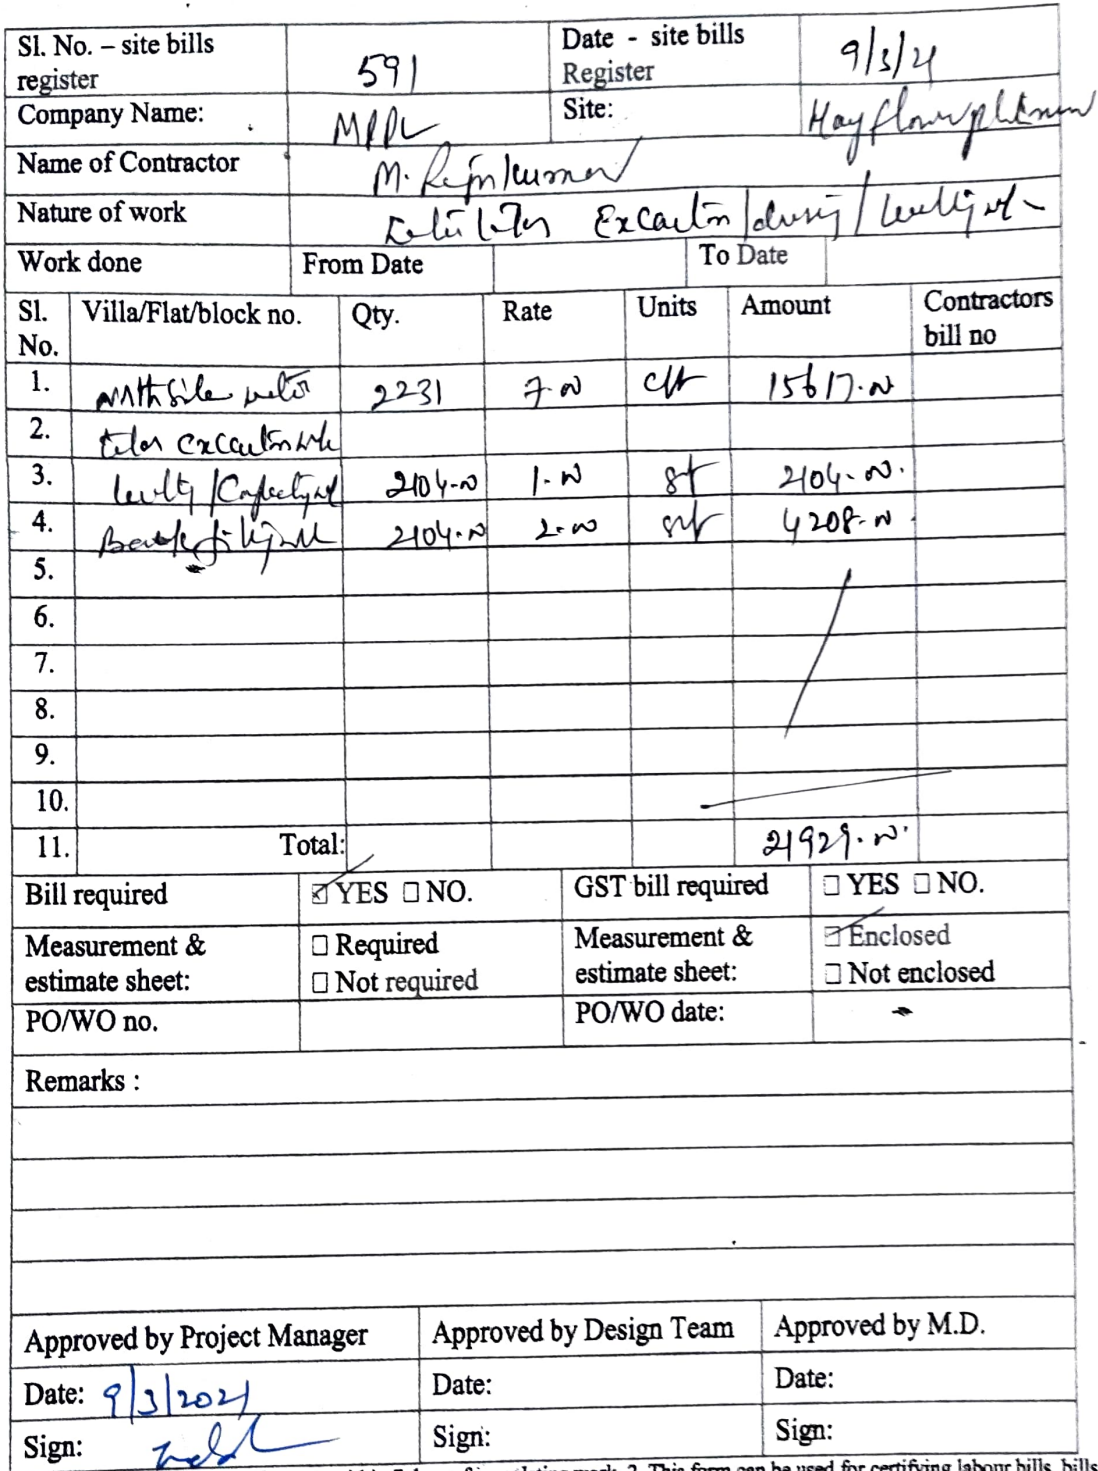 Sl. No. – site bills register 591 Date - site bills Register 9/3/21
Company Name: MPPL Site: Mayflower platinum
Name of Contractor M. Rajukumar
Nature of work Excavtion / /
Work done From Date To Date
Sl. No. Villa/Flat/block no. Qty. Rate Units Amount Contractors bill no
1. North side 2231 7-00 cft 15617-00
2.
3. 2104-00 1-00 sft 2104-00
4. Back filling 2104-00 2-00 sft 4208-00
5.
6.
7.
8.
9.
10.
11. Total: 21929-00
Bill required ☑ YES ☐ NO. GST bill required ☐ YES ☐ NO.
Measurement & estimate sheet: ☐ Required ☐ Not required Measurement & estimate sheet: ☑ Enclosed ☐ Not enclosed
PO/WO no. PO/WO date:
Remarks :
Approved by Project Manager Approved by Design Team Approved by M.D.
Date: 9/3/2021 Date: Date:
Sign: Sign: Sign:
2. This form can be used for certifying labour bills, bills